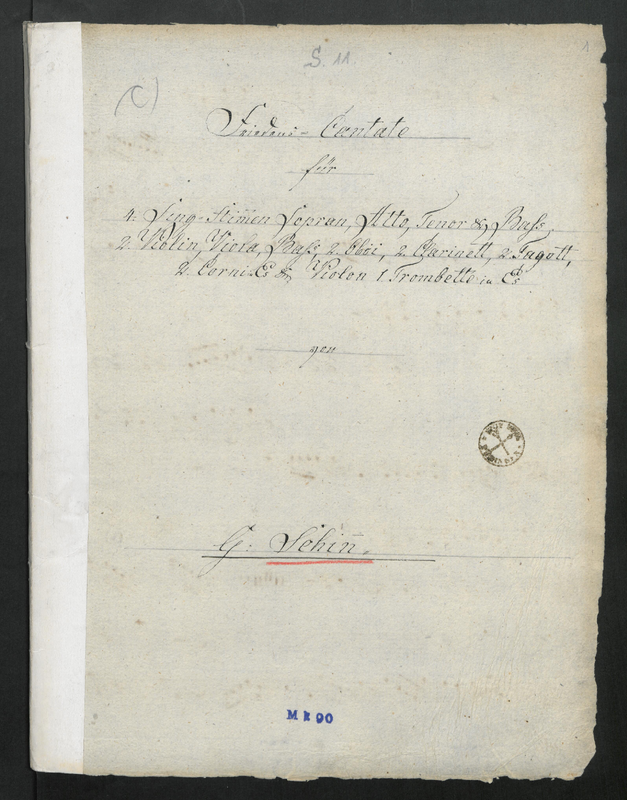 S. 11.
1
C)
Friedens-Cantate
für
4. Sing-Stim̄en Sopran, Alto, Tenor & Baſs,
2. Violin, Viola, Baſs, 2. Oboi, 2. Clarinett, 2. Fagott,
2. Corni Es & Violon 1 Trombette in Es
von
G: Schin̄.
M k 90